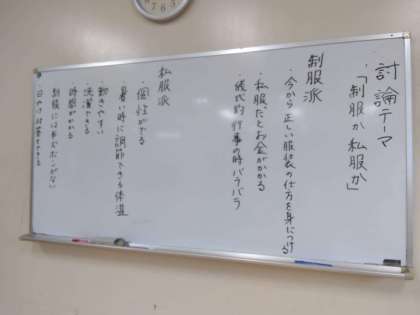 討論テーマ
・「制服か私服か」
制服派
・今から正しい服装の仕方を身につける
・私服だとお金がかかる
・儀式的行事の時バラバラ
私服派
・個性がでる
・暑い時に調節できる体温
・動きやすい
・洗濯できる
時間がかかる
制服には長ズボンがない
・日やけ対策もできる